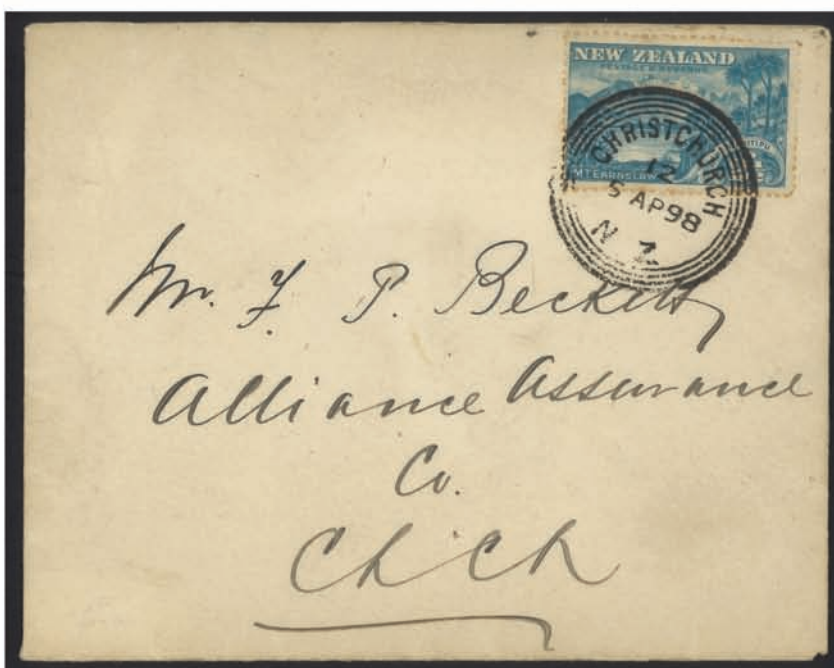 NEW ZEALAND
POSTAGE & REVENUE
MT EARNSLAW
CHRISTCHURCH
12
5 AP 98
N Z
Mr. F. P. Beckett
Alliance Assurance
Co.
Ch Ch